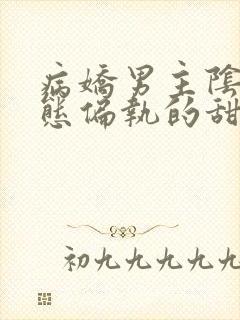 病嬌男主陰
態偏執的甜
初九九九九九